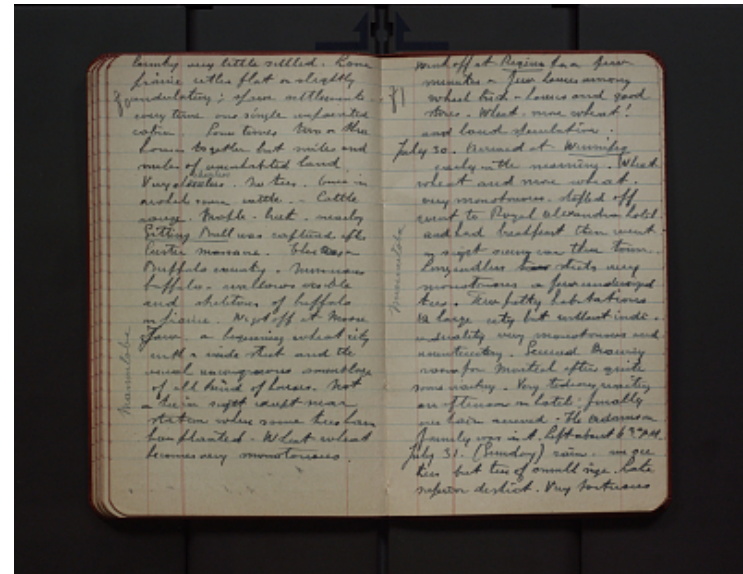 country very little settled. Some
prairie either flat or slightly
undulating; sparse settlements
every time one single unpainted
cabin. Sometimes two or three
houses together but miles and
miles of uninhabited land
Very desolate. No trees. Comes in
cattle. - Cattle
range. Maple Creek. nearby
Sitting Bull was captured after
Custer massacre. Also
Buffalo country. Numerous
buffalo wallows visible
and skeletons of buffalo
in prairie. We got off at Moose
Jaw a beginning wheat city
with a wide street and the
usual incongruous assemblage
of all kind of houses. Not
a tree in sight except near
station where some trees have
been planted. Wheat wheat
becomes very monotonous.
Mannitoba
went off at Regina for a few
minutes a few houses among
wheat brick houses and good
stores. Wheat. more wheat!
and land speculation.
July 30. Arrived at Winnipeg
early in the morning. Wheat
wheat and more wheat.
very monotonous. Stopped off
went to Royal Alexandra hotel
and had breakfast then went
sight seeing on the town.
Long endless streets very
monotonous a few undersized
trees. Few habitations
A large city but without indi-
viduality very monotonous and
uninteresting. Secured Drawing
room for Montreal after quite
some waiting. Very tedious waiting
an afternoon in hotel; finally
our train arrived. The
family was in it. Left about 6
July 31. (Sunday) rain. we see
trees but trees of small size. Lake
Superior district. Very tortuous
Mannitoba